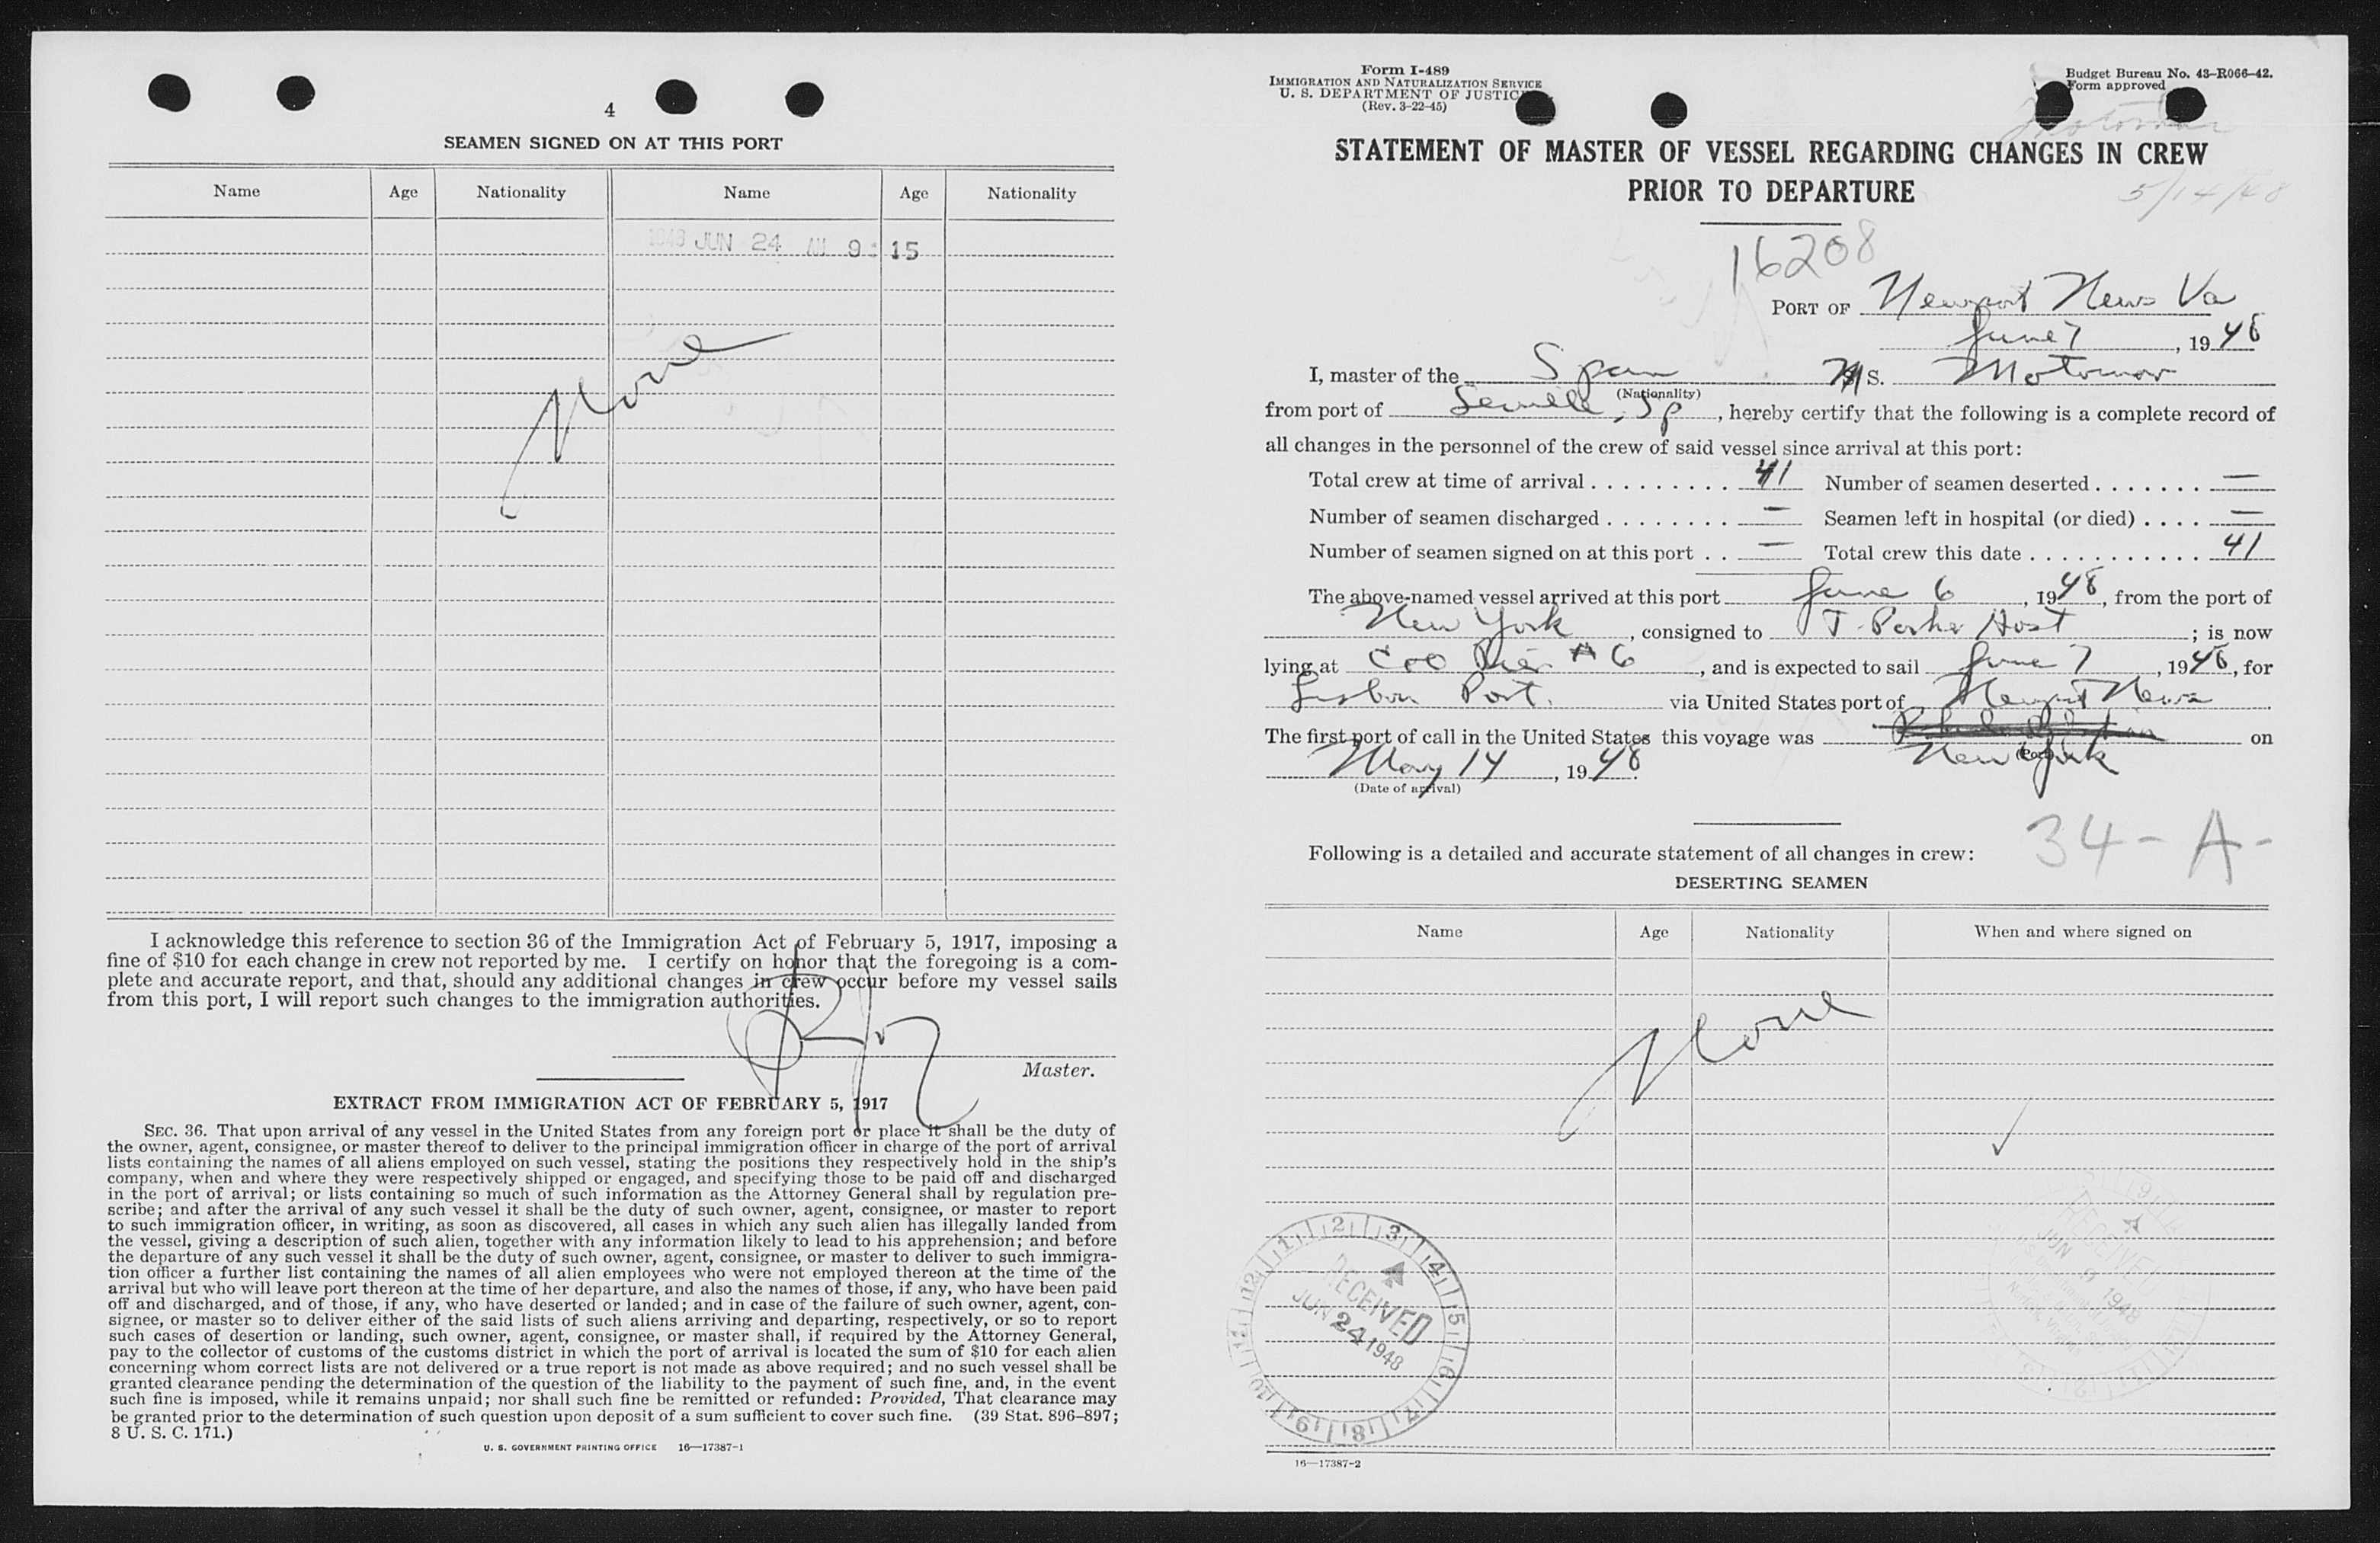 4
SEAMEN SIGNED ON AT THIS PORT
Name Age Nationality Name Age Nationality
1948 JUN 24 AM 9:15
None
I acknowledge this reference to section 36 of the Immigration Act of February 5, 1917, imposing a
fine of $10 for each change in crew not reported by me. I certify on honor that the foregoing is a com-
plete and accurate report, and that, should any additional changes in crew occur before my vessel sails
from this port, I will report such changes to the immigration authorities.
Master.
EXTRACT FROM IMMIGRATION ACT OF FEBRUARY 5, 1917
SEC. 36. That upon arrival of any vessel in the United States from any foreign port or place it shall be the duty of
the owner, agent, consignee, or master thereof to deliver to the principal immigration officer in charge of the port of arrival
lists containing the names of all aliens employed on such vessel, stating the positions they respectively hold in the ship's
company, when and where they were respectively shipped or engaged, and specifying those to be paid off and discharged
in the port of arrival; or lists containing so much of such information as the Attorney General shall by regulation pre-
scribe; and after the arrival of any such vessel it shall be the duty of such owner, agent, consignee, or master to report
to such immigration officer, in writing, as soon as discovered, all cases in which any such alien has illegally landed from
the vessel, giving a description of such alien, together with any information likely to lead to his apprehension; and before
the departure of any such vessel it shall be the duty of such owner, agent, consignee, or master to deliver to such immigra-
tion officer a further list containing the names of all alien employees who were not employed thereon at the time of the
arrival but who will leave port thereon at the time of her departure, and also the names of those, if any, who have been paid
off and discharged, and of those, if any, who have deserted or landed; and in case of the failure of such owner, agent, con-
signee, or master so to deliver either of the said lists of such aliens arriving and departing, respectively, or so to report
such cases of desertion or landing, such owner, agent, consignee, or master shall, if required by the Attorney General,
pay to the collector of customs of the customs district in which the port of arrival is located the sum of $10 for each alien
concerning whom correct lists are not delivered or a true report is not made as above required; and no such vessel shall be
granted clearance pending the determination of the question of the liability to the payment of such fine, and, in the event
such fine is imposed, while it remains unpaid; nor shall such fine be remitted or refunded: Provided, That clearance may
be granted prior to the determination of such question upon deposit of a sum sufficient to cover such fine. (39 Stat. 896–897;
8 U. S. C. 171.)
U. S. GOVERNMENT PRINTING OFFICE 16—17387-1
Form I-489
IMMIGRATION AND NATURALIZATION SERVICE
U. S. DEPARTMENT OF JUSTICE
(Rev. 3-22-45)
Budget Bureau No. 43-R066-42.
Form approved
STATEMENT OF MASTER OF VESSEL REGARDING CHANGES IN CREW
PRIOR TO DEPARTURE
5/14/48
16208
PORT OF Newport News Va
June 7, 1948
I, master of the Span MS. Motomar
(Nationality)
from port of Seville, Sp, hereby certify that the following is a complete record of
all changes in the personnel of the crew of said vessel since arrival at this port:
Total crew at time of arrival . . . . . . . . . 41 Number of seamen deserted . . . . . . . —
Number of seamen discharged . . . . . . . . — Seamen left in hospital (or died) . . . . —
Number of seamen signed on at this port . . — Total crew this date . . . . . . . . . . . 41
The above-named vessel arrived at this port June 6, 1948, from the port of
New York, consigned to T. Parker Host; is now
lying at C&O Pier #6, and is expected to sail June 7, 1948, for
Lisbon Port. via United States port of Newport News
The first port of call in the United States this voyage was on
New York
(Port)
May 14, 1948.
(Date of arrival)
34-A-
Following is a detailed and accurate statement of all changes in crew:
DESERTING SEAMEN
Name Age Nationality When and where signed on
None
RECEIVED
JUN 24 1948
RECEIVED
JUN 9 1948
16—17387-2